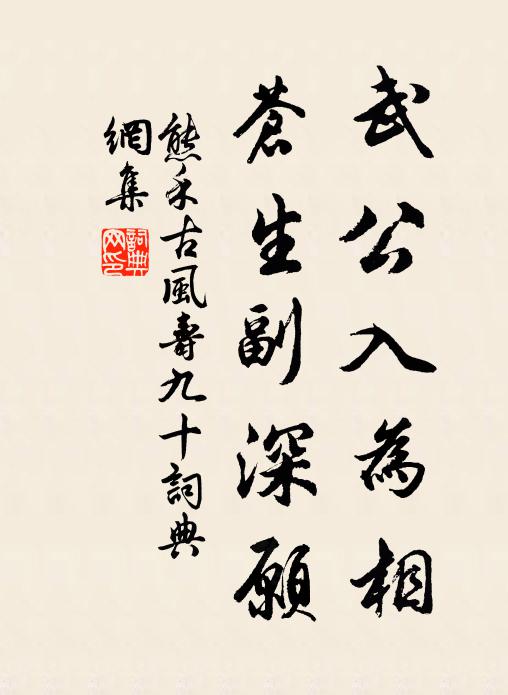 武公入為相
蒼生副深願
熊禾古風壽九十詞典
網集
詞典
網印